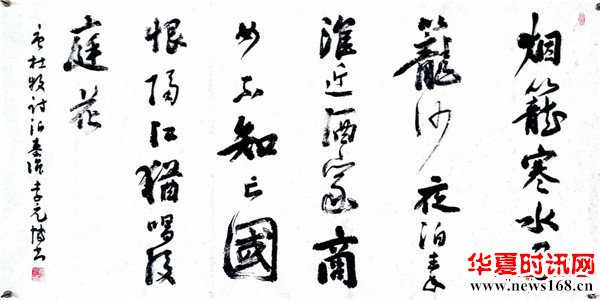 烟籠寒水月
籠沙夜泊秦
淮近酒家商
女不知亡國
恨隔江猶唱後
庭花
唐杜牧诗泊秦淮 李元博书
华夏时讯网
www.news168.cn